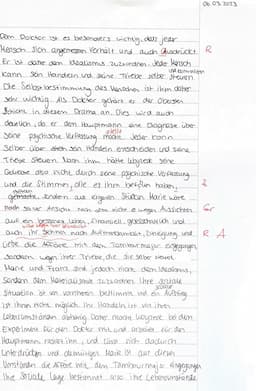 06.03.2023
Dem Doktor ist es besonders wichtig, dass jeder
Mensch sich angemessen verhält und auch ausdrückt R
Er ist daher dem Idealismus zuzuordnen. Jeder Mensch
kann sein Handeln und seine Triebe selbst steuern
Die Selbstbestimmung des Menschen ist ihm daher
sehr wichtig. Als Doktor gehört er der Oberen
Schicht in diesem Drama an. Dies wird auch
deutlich, da er dem Hauptmann eine Diagnose über
seine psychische Verfassung macht. Jeder kann
stellt
selber über sein Handeln entscheiden und seine
Triebe steuern. Nach ihm hätte Woyzeck seine
Geliebte also nicht durch seine psychische Verfassung
und die Stimmen, die es ihm befohlen haben, R
sondern aus eigenen Stücken. Marie würde
nach seiner Ansicht nach wegen Aussichten Gr
auf ein besseres Leben, finanziell gesellschaftlich und
auch ihr Sehnen nach Aufmerksamkeit, Zuneigung und R A
Liebe die Affäre mit dem Tambourmajor eingegangen
sondern wegen ihrer Triebe, die sie selber steuert.
Marie und Franz sind jedoch nicht dem Idealismus,
sondern dem Materialismus zuzuordnen. Ihre soziale
Situation ist von vornherein bestimmt und ein Aufstieg
ist ihnen nicht möglich. Ihr Handeln ist von ihren
Lebensumständen abhängig. Daher macht Woyzeck bei dem
Experiment für den Doktor mit und arbeitet für den
Hauptmann, rasiert ihn, und lässt sich dadurch
unterdrücken und demütigen. Marie ist aus diesen
Umständen die Affäre mit dem Tambourmajor eingegangen
Ihre soziale Lage bestimmt also ihre Lebensumstände